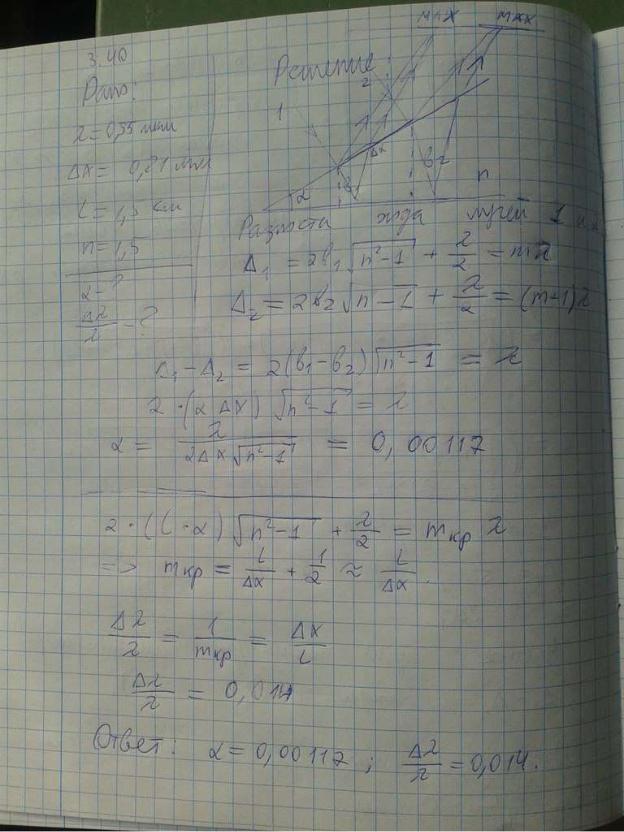 max max
3.40
Дано:
Решение:
λ = 0,55 мкм
Δx = 0,21 мм
l = 1,5 см
n = 1,5
α - ?
Δλ/λ - ?
1
2
Δx
α
b₂
n
Разность хода лучей 1 и
Δ₁ = 2b₁√(n²-1) + λ/2 = mλ
Δ₂ = 2b₂√(n-1) + λ/2 = (m-1)λ
Δ₁ - Δ₂ = 2(b₁-b₂)√(n²-1) = λ
2·(αΔx)√(n²-1) = λ
α = λ/(2Δx√(n²-1)) = 0,00117
2·(l·α)√(n²-1) + λ/2 = mкр λ
=> mкр = l/Δx + 1/2 ≈ l/Δx.
Δλ/λ = 1/mкр = Δx/l
Δλ/λ = 0,014
Ответ: α = 0,00117 ; Δλ/λ = 0,014.